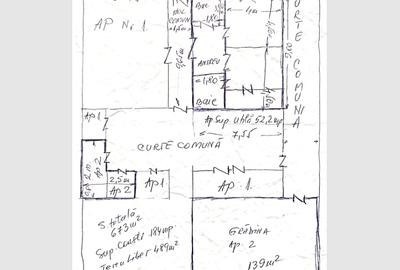 Baie
AP Nr. 1
CURTE COMUNA
1,80
Baie
Ap Sup Utilă 52,2 mp
7,55
CURTE COMUNĂ
AP 1
AP 2
2,5m
AP 2
AP 1
AP. 1
S. totală
673 m²
Sup. constr 184 mp
Teren Liber 489m²
GRĂDINA
Ap. 2
139 m²